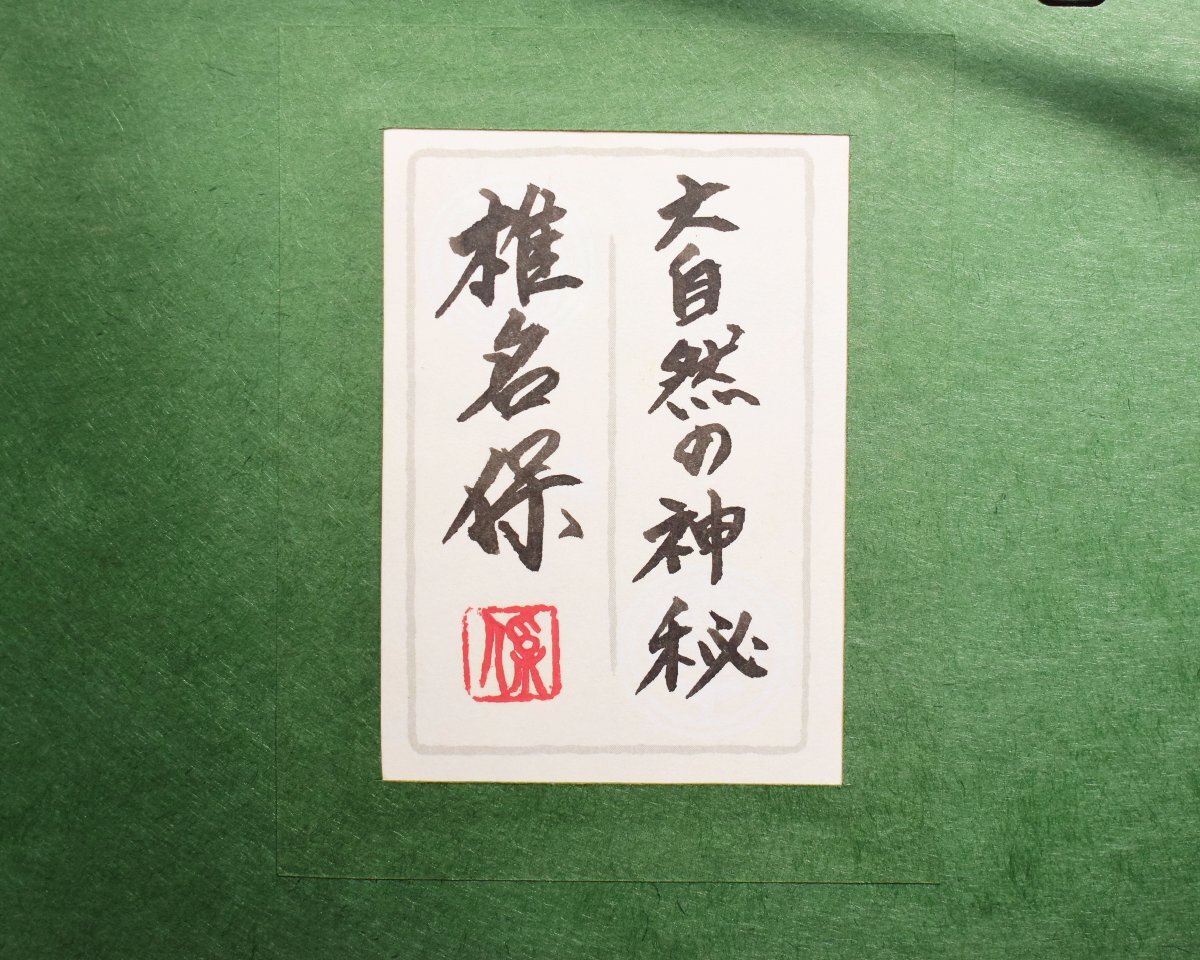 大自然の神秘
椎名保
保